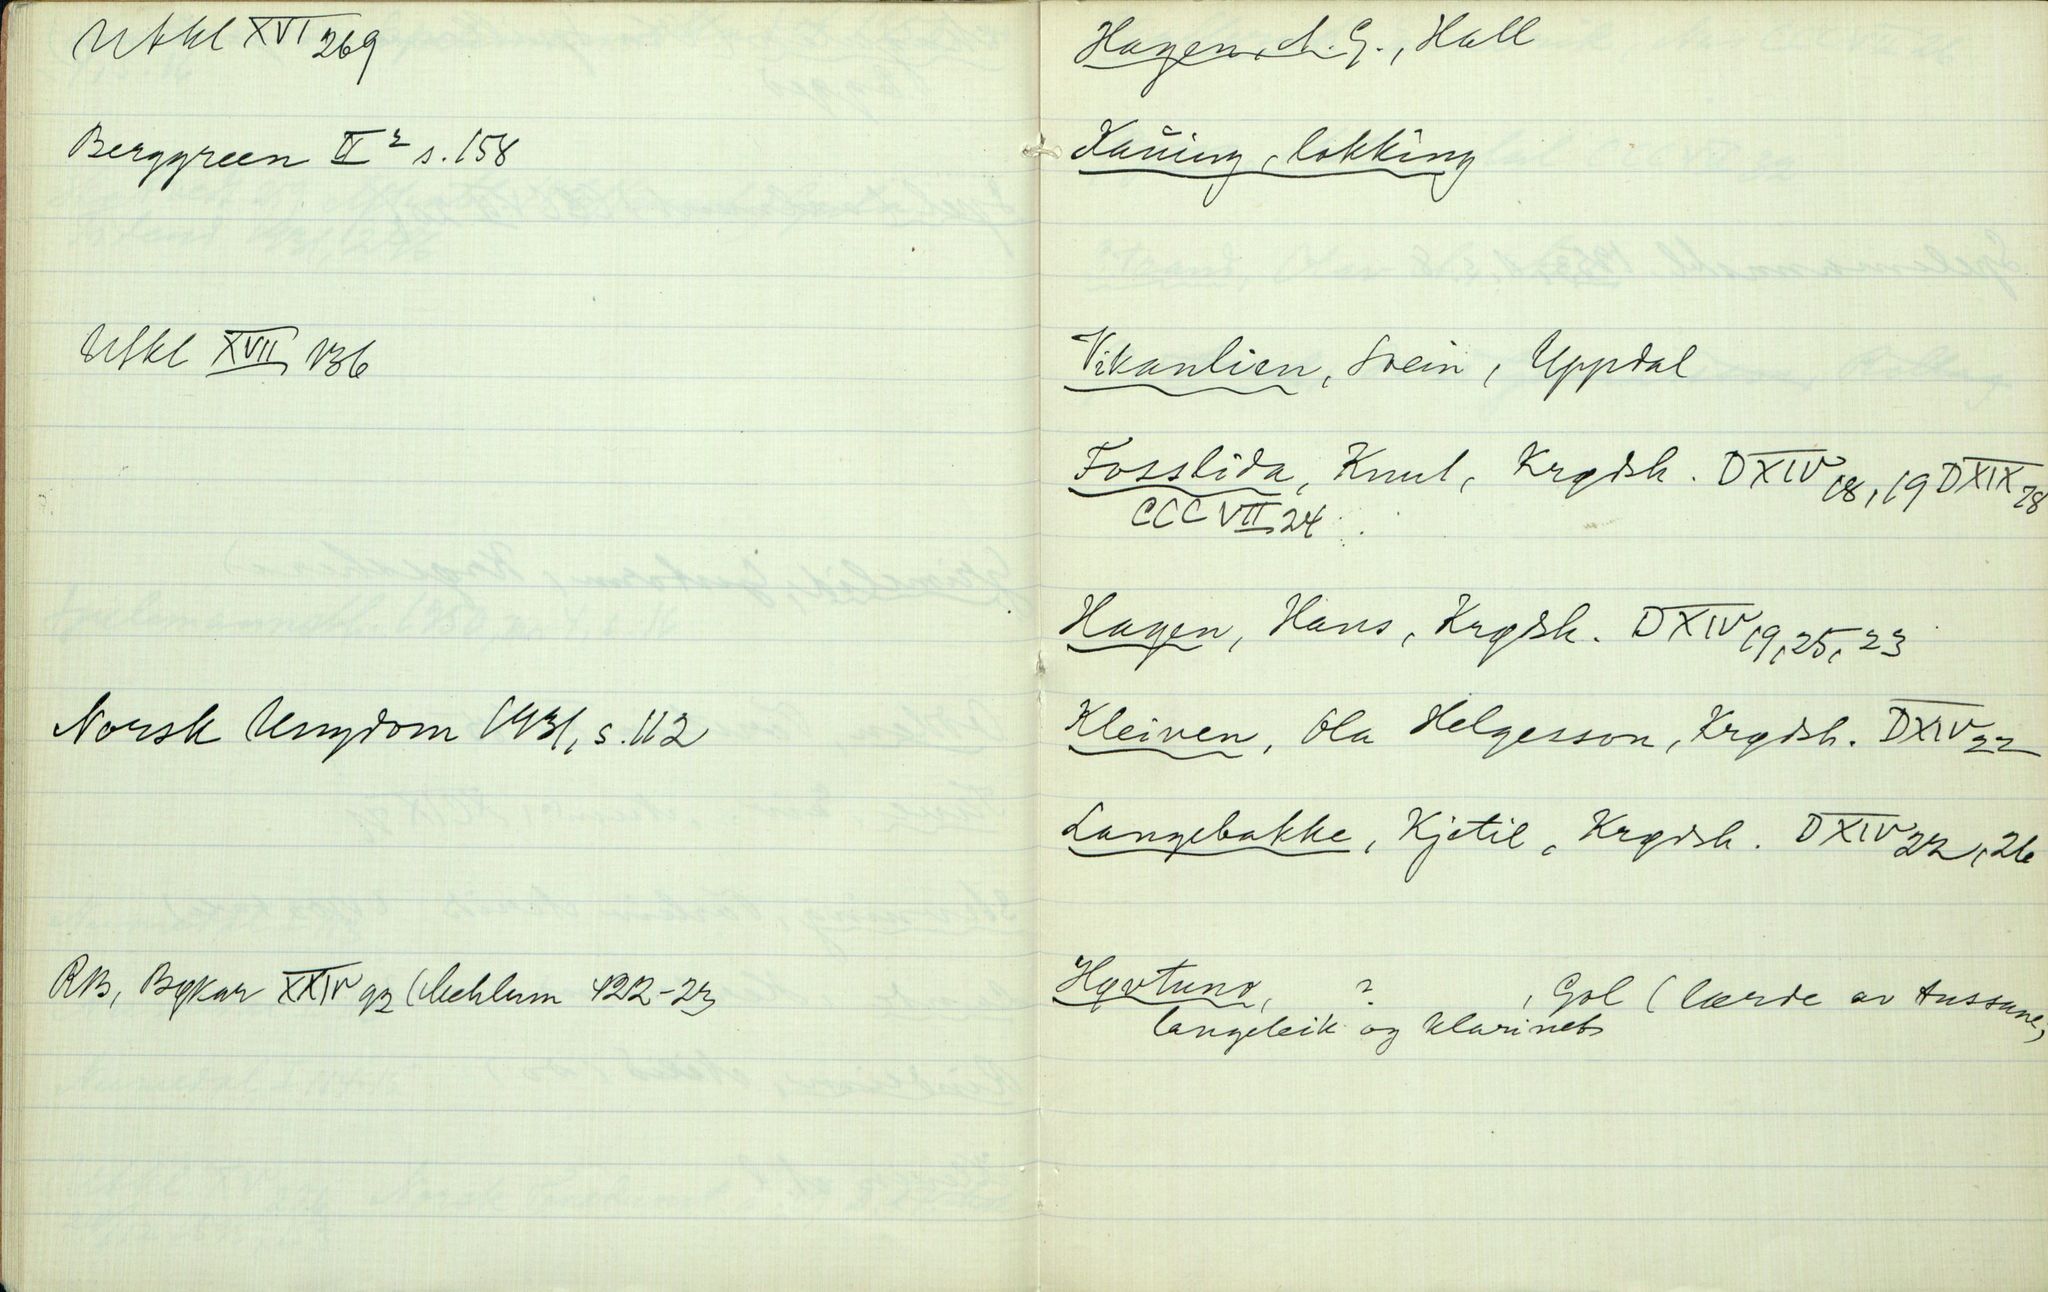 Utkl XVI 269
Berggreen II² s. 158
Utkl XVII 136
Norsk Ungdom 1931, s. 112
RB, Bykar XXIV 92 (Mehlum 422-23
Hagen, A. G., Hall
Kauing, lokking
Vikanlien, Svein, Uppdal
Fosslida, Knut, Krødsh. DXIV 18, 19 DXIX 28
CCCVII 24
Hagen, Hans, Krødsh. DXIV 19, 25, 23
Kleiven, Ola Helgesson, Krødsh. DXIV 22
Langebakke, Kjetil, Krødsh. DXIV 22, 26
Høvtun, ? , Gol (lærde av
langeleik og klarinett